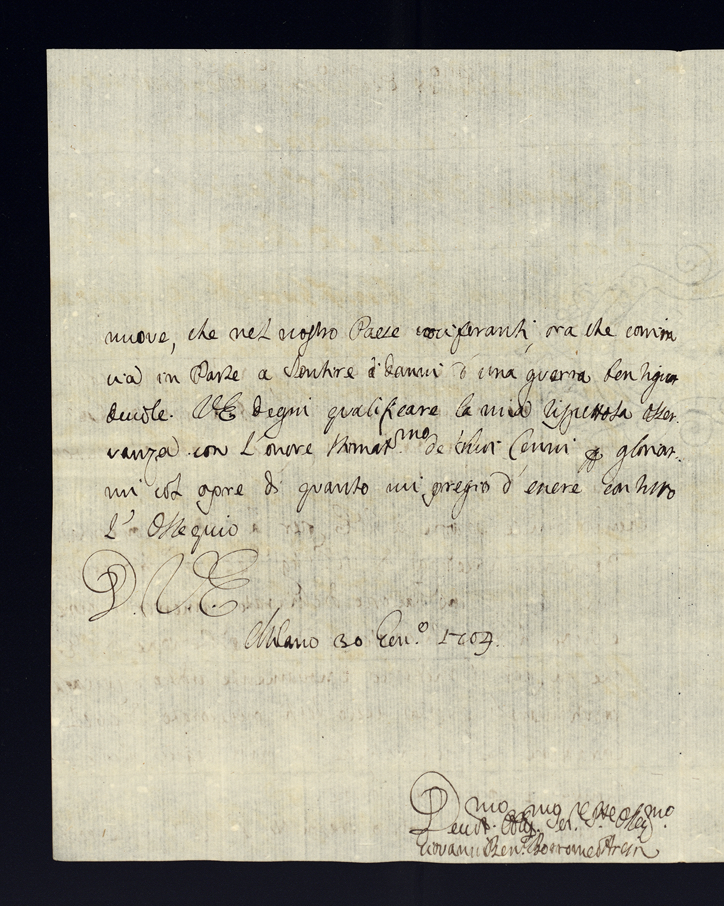 nuove, che nel nostro Paese vociferanti, ora che comin
cia in Parte a Sentire i danni d'una guerra ben sgua
devole. VE degni qualificare la mia rispettosa osser
vanza con l'onore Stimat.mo de suoi Cenni p gloriar.
mi col opre di quanto mi pregio d'essere con tutto
l'Ossequio
D. V.E.
Milano 30 Gen.o 1704.
Devot.mo Obbl.mo Ser.
Giovanni Ben. Borromeo Aresi